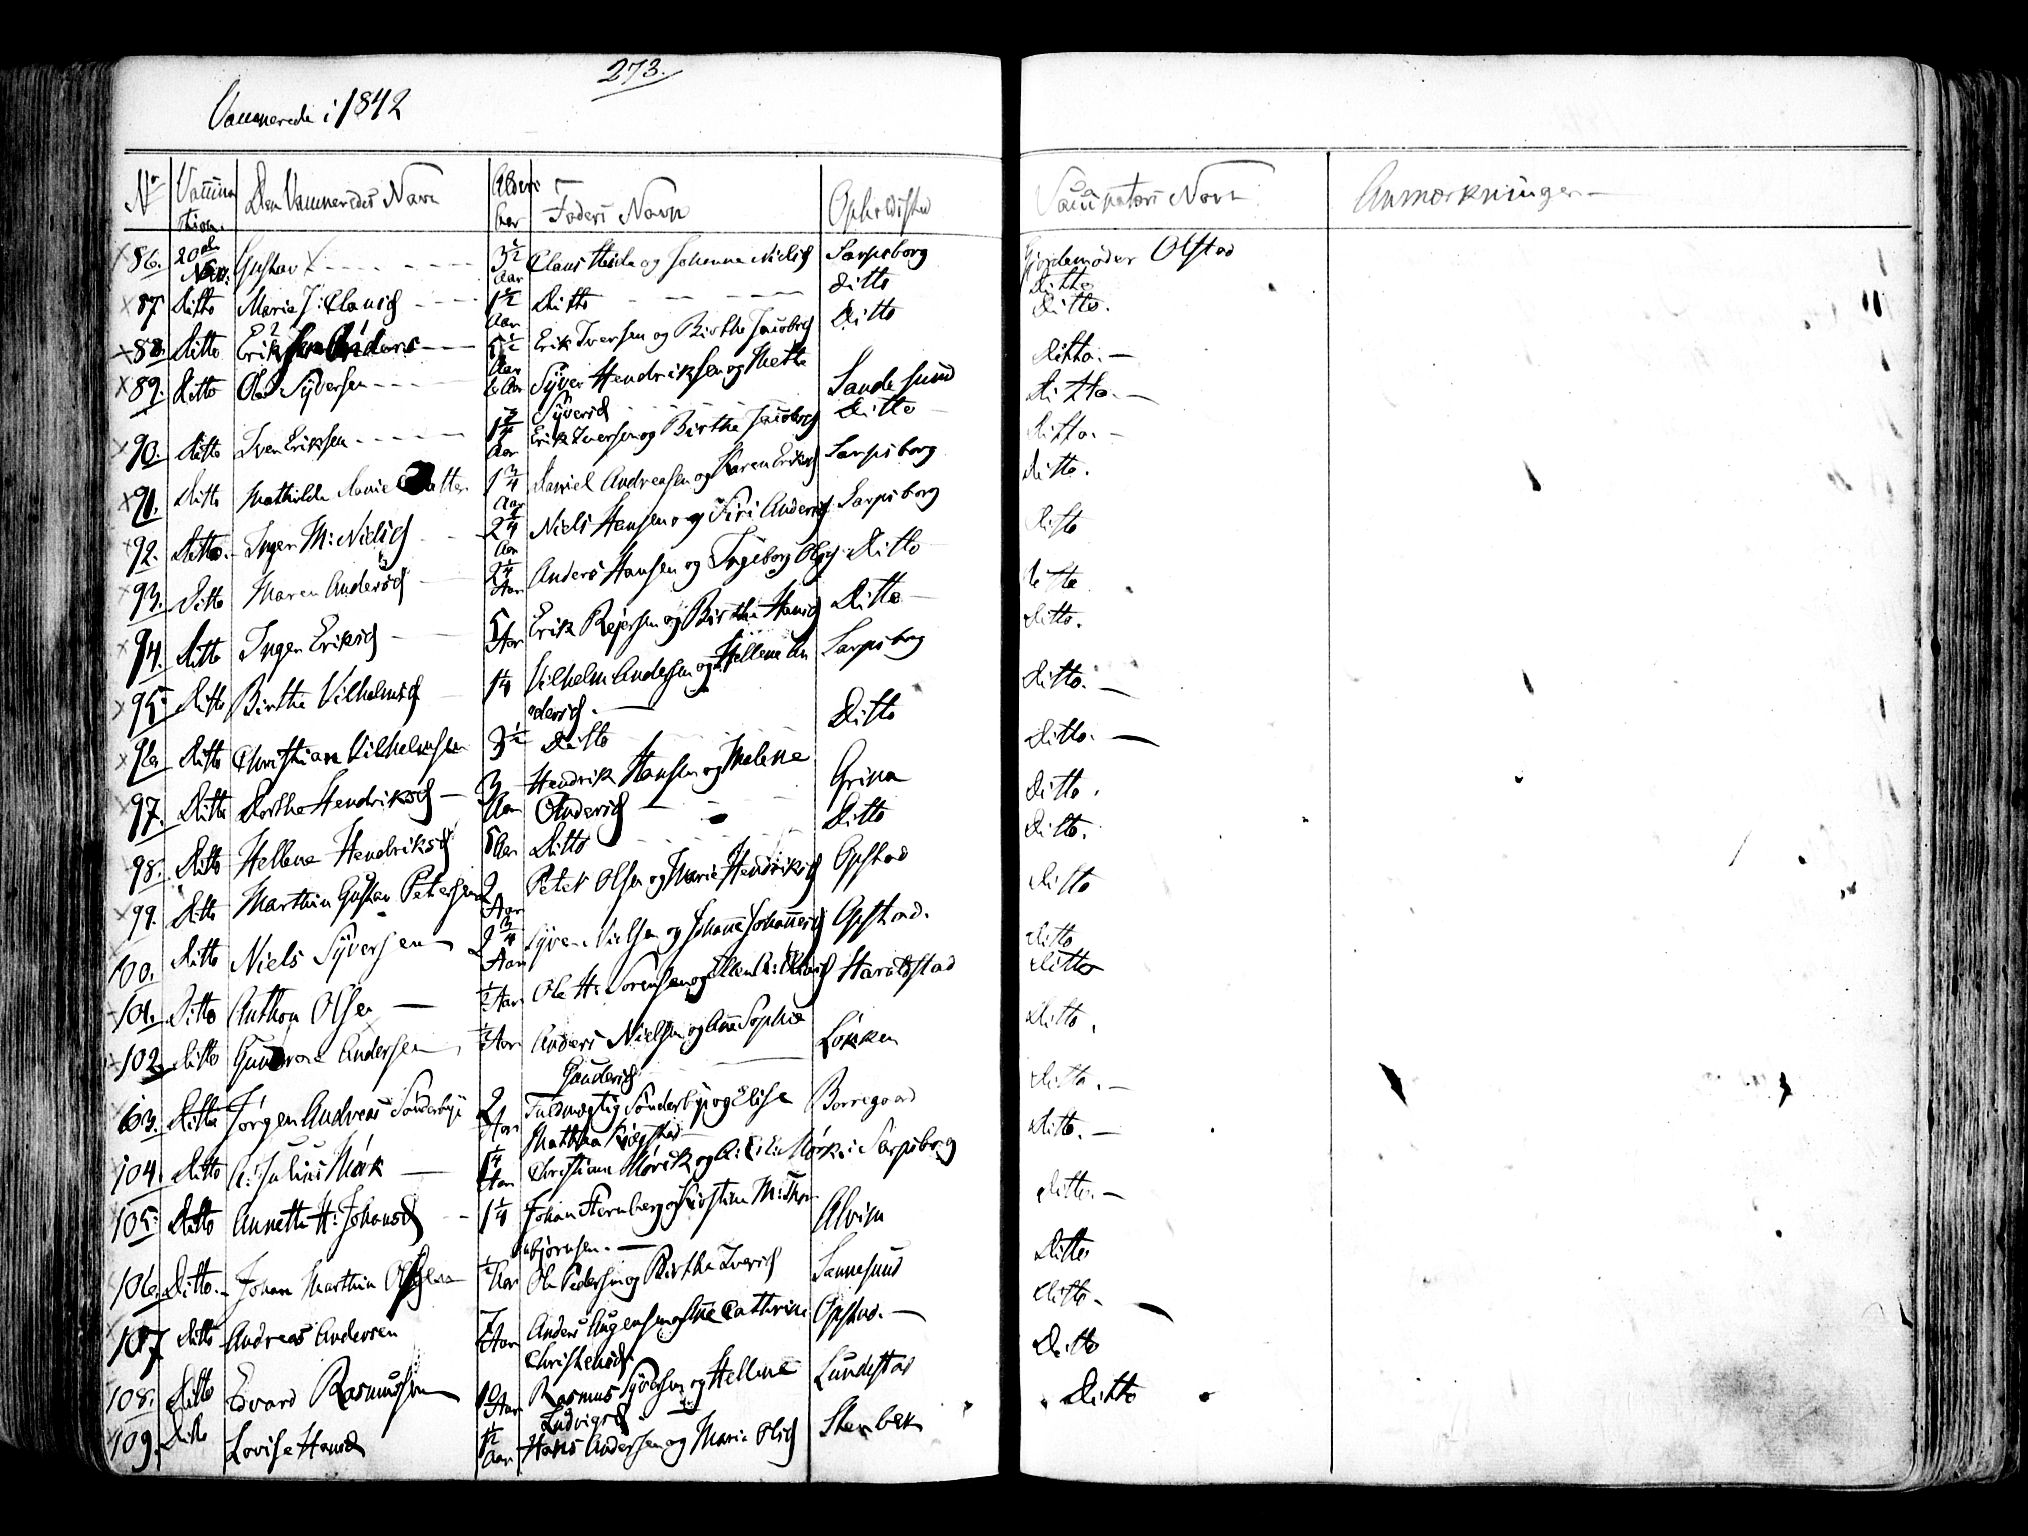 273.
Vaccinerede i 1842
No Vaccination. Den Vaccineredes Navn Alder Aar Faders Navn Opholdsted Vaccinateurs Navn Anmærkninger
86. 20de Nov: Gustav 3½ Aar Claus og Johanne Nielsd Sarpsborg Gjordemoder Olstad
Ditto
87 Ditto Marie J: Clausd 1½ Aar Ditto Ditto Ditto.
88. Ditto Erik 5½ Aar Erik Iversen og Birthe Jacobsd Ditto Ditto.
89. Ditto Ole Syversen 6 Aar Syver Hendriksen og Mette Syversd Sandesund Ditto.
90. Ditto Iver Eriksen 1¾ Aar Erik Iversen og Birthe Jacobsd Ditto Ditto.
91. Ditto Mathilde 1¾ Aar Daniel Andreasen og Karen Eriksd Sarpsborg Ditto.
92. Ditto. Inger M: Nielsd 2¼ Aar Niels Hansen og Siri Andersd Sarpsborg Ditto
93. Ditto Maren Andersd 2¼ Aar Anders Hansen og Ingeborg Olsd Ditto Ditto
94. Ditto Inger Eriksd 5 Aar Erik Rejersen og Birthe Hansd Ditto Ditto.
95. Ditto Birthe Vilhelmsd 1¼ Vilhelm Andersen og Hellene Andersd. Sarpsborg Ditto.
96 Ditto Christian Vilhelmsen 3½ Ditto Ditto Ditto.
97. Ditto Dorthe Hendriksd 3 Aar Hendrik Hansen og Malene Andersd Grina Ditto.
98. Ditto Hellene Hendriksd 5 Aar Ditto Ditto Ditto.
99. Ditto Marthin Gustav Petersen 2 Aar Peter Olsen og Marie Hendriksd Opstad Ditto
100. Ditto Niels Syversen 2¾ Aar Syver Nielsen og Johanne Johannesd Opstad. Ditto
101. Ditto Anthon Olsen ½ Aar Ole H: Sorensen og Haraldstad Ditto
102. Ditto Andersen ½ Aar Anders Nielsen og Ane Sophie Gundersd Løkken Ditto.
103. Ditto Jørgen Andreas Sønderbye 2 Aar Fuldmægtig Sønderbye og Elise Mathea Borregaard Ditto.
104. Ditto Julius Mørk Aar Christian Mørk og Mørk i Sarpsborg Ditto.
105. Ditto Annette H: Johansd 1¼ Johan Sternberg og Kirstine M: Thorbjørnsen. Alvim Ditto.
106. Ditto. Johan Marthin Olsen ½ Aar Ole Pedersen og Birthe Iversd Sannesund Ditto
107 Ditto Andreas Andersen 7 Aar Anders og Ane Cathrine Christensd Opstad. Ditto.
108. Ditto Edvard Rasmussen 10 Aar Rasmus Syversen og Hellene Ludvigsd Lundestad Ditto
109. Ditto Lovise Hansd 1½ Aar Hans Andersen og Maria Olsd Stenbek Ditto